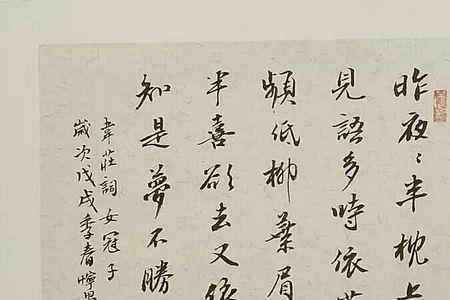 昨夜夜半枕
見語多時依
頻低柳葉眉
半喜欲去又依
知是夢不勝
韋莊詞女冠子
歲次戊戌季春